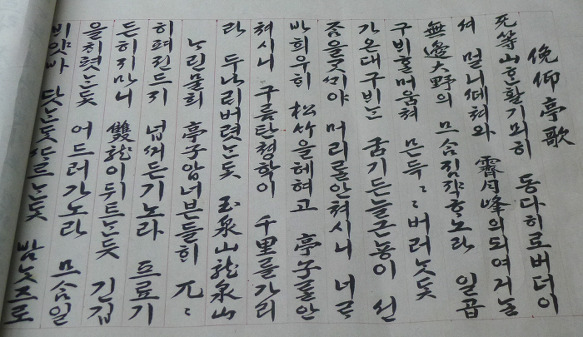 俛仰亭歌
无等山ᄒᆞᆫ활기뫼히 동다히로버더이
셔 멀니ᄯᅦ쳐와 霽月峰의되여거늘
無邊大野의 므슴짐쟉ᄒᆞ노라 일곱
구비ᄒᆞᆯ머움쳐 믄득〻〻버러ᄂᆞᆺ듯
가온대구비ᄂᆞᆫ 굼긔든늘근뇽이 선
ᄌᆞᆷ을ᄀᆞᆺᄭᆡ야 머리ᄅᆞᆯ안쳐시니 너ᄅᆞ
바희우희 松竹을헤혀고 亭子ᄅᆞᆯ안
쳐시니 구름탄쳥학이 千里를가리
라 두ᄂᆞ리버렷ᄂᆞᆫ듯 玉泉山龍泉山
ᄂᆞ린믈희 亭子압너븐들희 兀〻
히펴진드시 넙ᄭᅥ든기노라 프르기
든히지마니 雙龍이뒤트ᄂᆞᆫ듯 긴깁
을치폇ᄂᆞᆫ듯 어드러가노라 므슴일
ᄇᆡ얏바 ᄃᆞᆺᄂᆞᆫ듯ᄯᆞ르ᄂᆞᆫ듯 밤ᄂᆞᆺ즈로